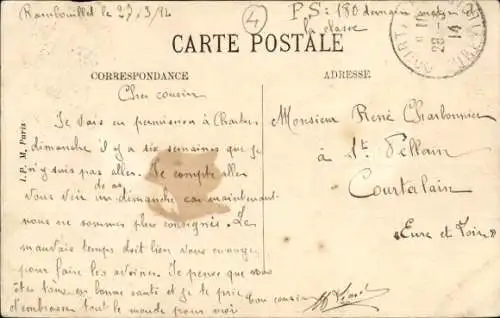 Rambouillet le 27/3/14
4
P.S: 180 demain matin et
la classe
CARTE POSTALE
CORRESPONDANCE
ADRESSE
Cher cousin
Je vais en permission à Chartres
dimanche il y a six semaines que je
n'y suis pas aller. Je compte aller
vous voir un de ces dimanche car maintenant
nous ne sommes plus consignés. Le
mauvais temps doit bien vous ennuyer
pour faire les avoines. Je pense que vous
êtes tous en bonne santé et je te prie
d'embrasser tout le monde pour moi
Ton cousin
Monsieur René Charbonnier
à St Pellerin
Courtalain
Eure et Loir
I. P. M, Paris
28 -
14